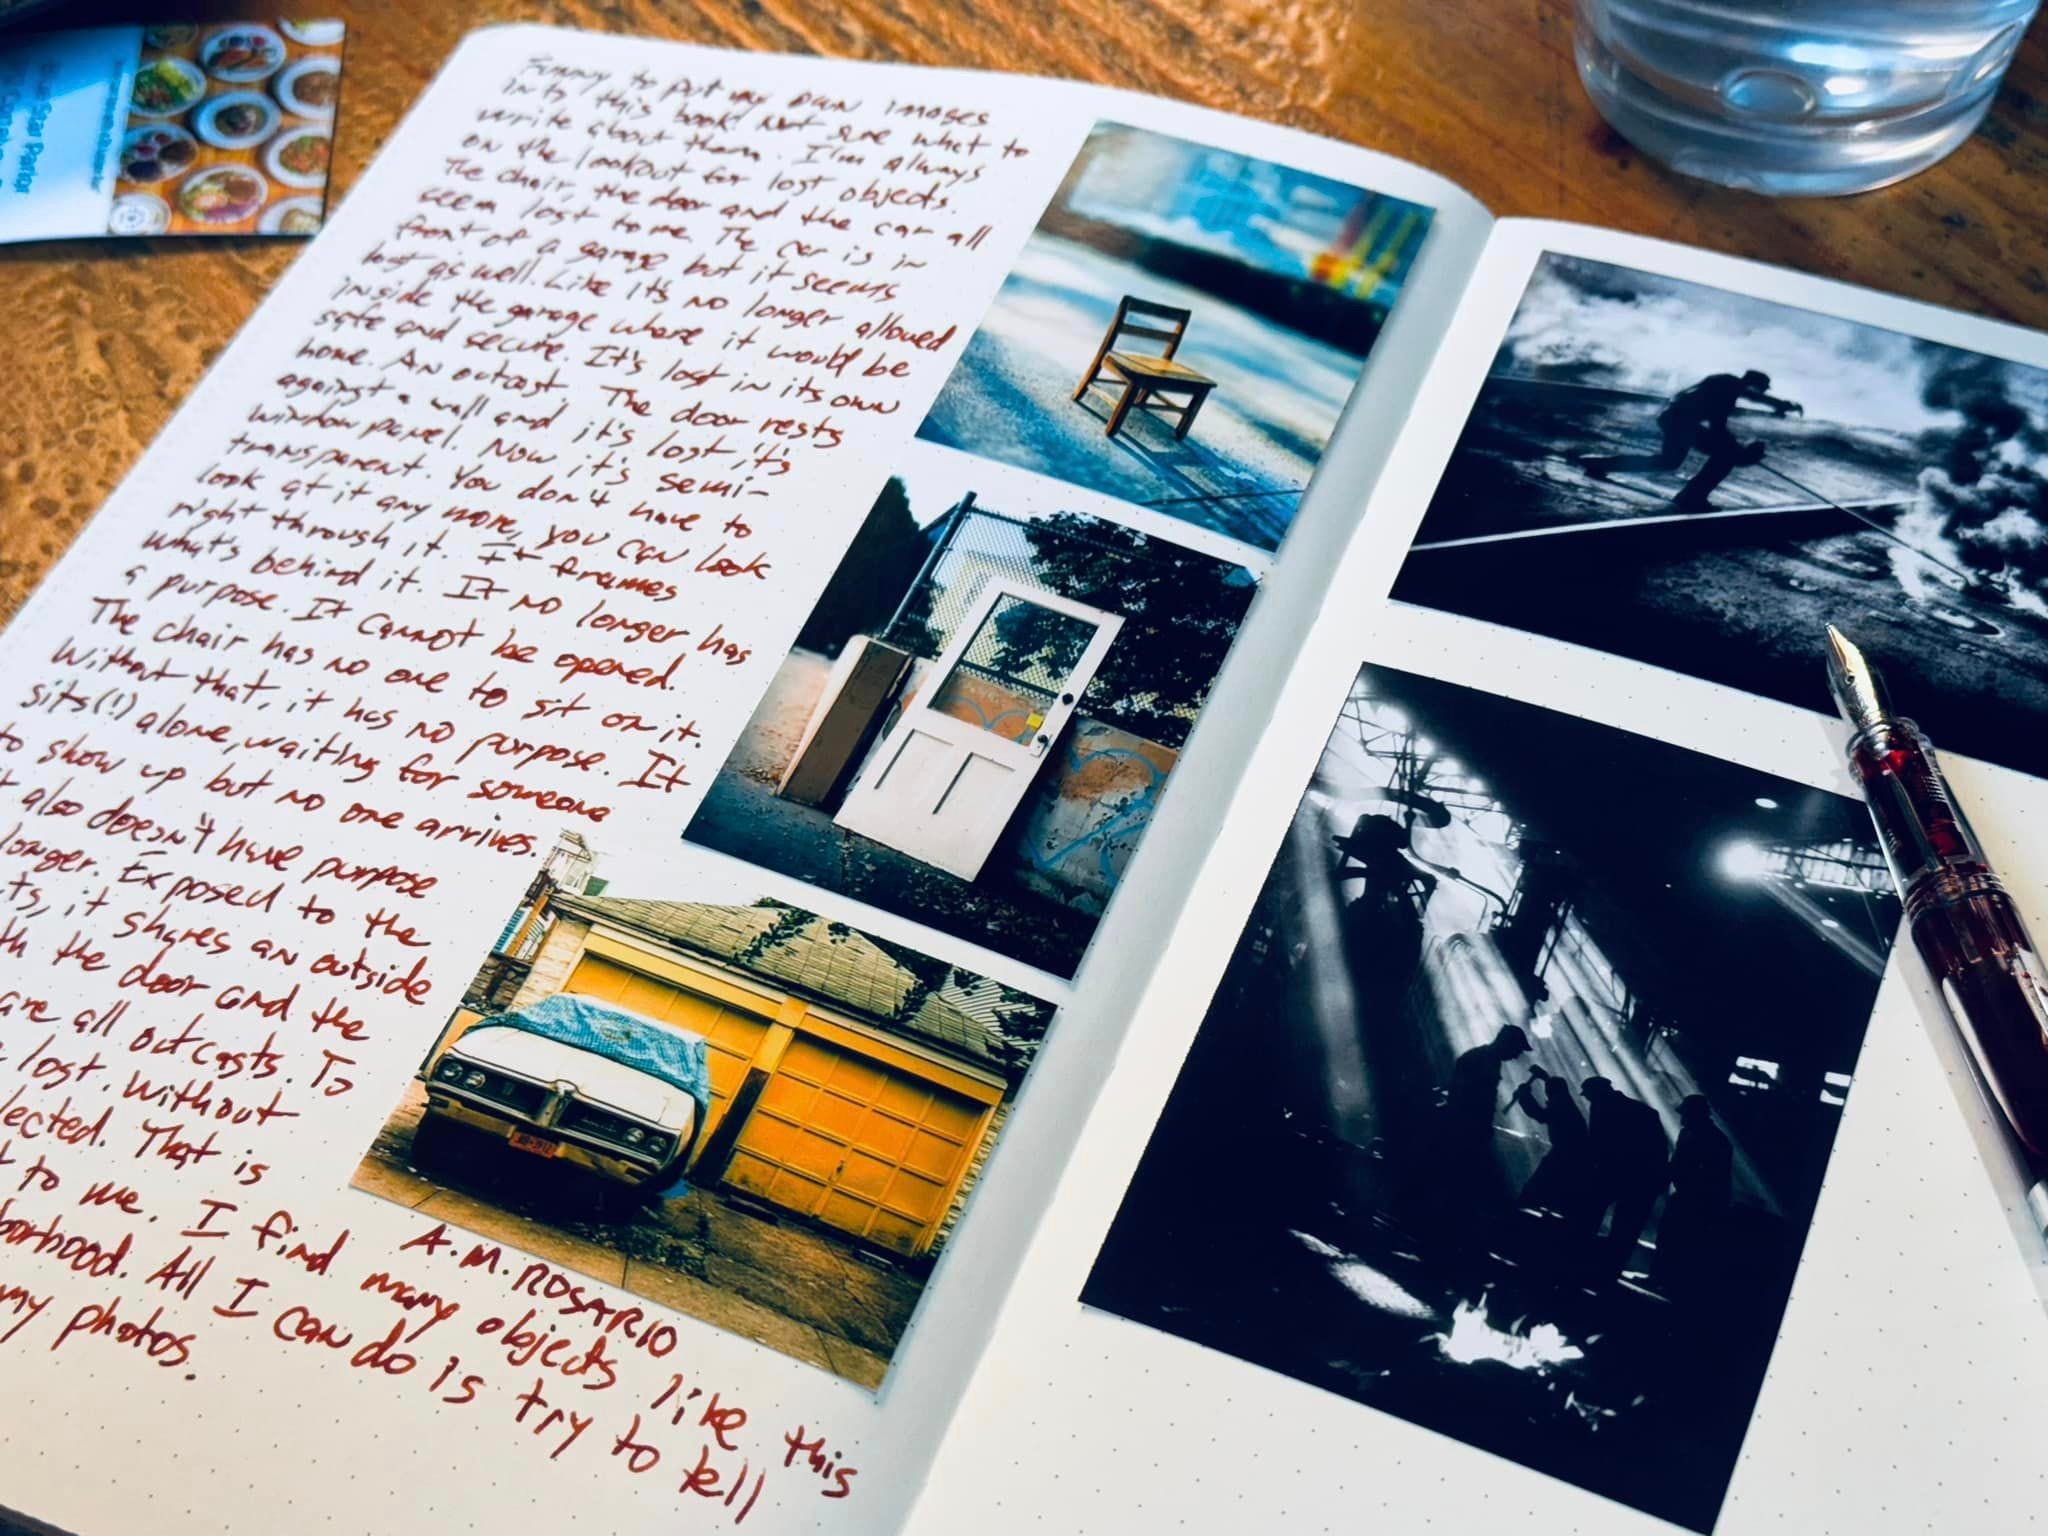 Funny to put my own images
into this book! Not sure what to
write about them. I'm always
on the lookout for lost objects.
The chair, the door and the car all
seem lost to me. The car is in
front of a garage but it seems
lost as well. Like it's no longer allowed
inside the garage where it would be
safe and secure. It's lost in its own
home. An outcast. The door rests
against a wall and it's lost, it's
window panel. Now it's semi-
transparent. You don't have to
look at it any more, you can look
right through it. It frames
what's behind it. It no longer has
a purpose. It cannot be opened.
The chair has no one to sit on it.
Without that, it has no purpose. It
sits(!) alone, waiting for someone
to show up but no one arrives.
also doesn't have purpose
longer. Exposed to the
it shares an outside
the door and the
are all outcasts. To
lost. Without
That is
to me. I find many objects like this
All I can do is try to tell
my photos.
A.M. ROSARIO